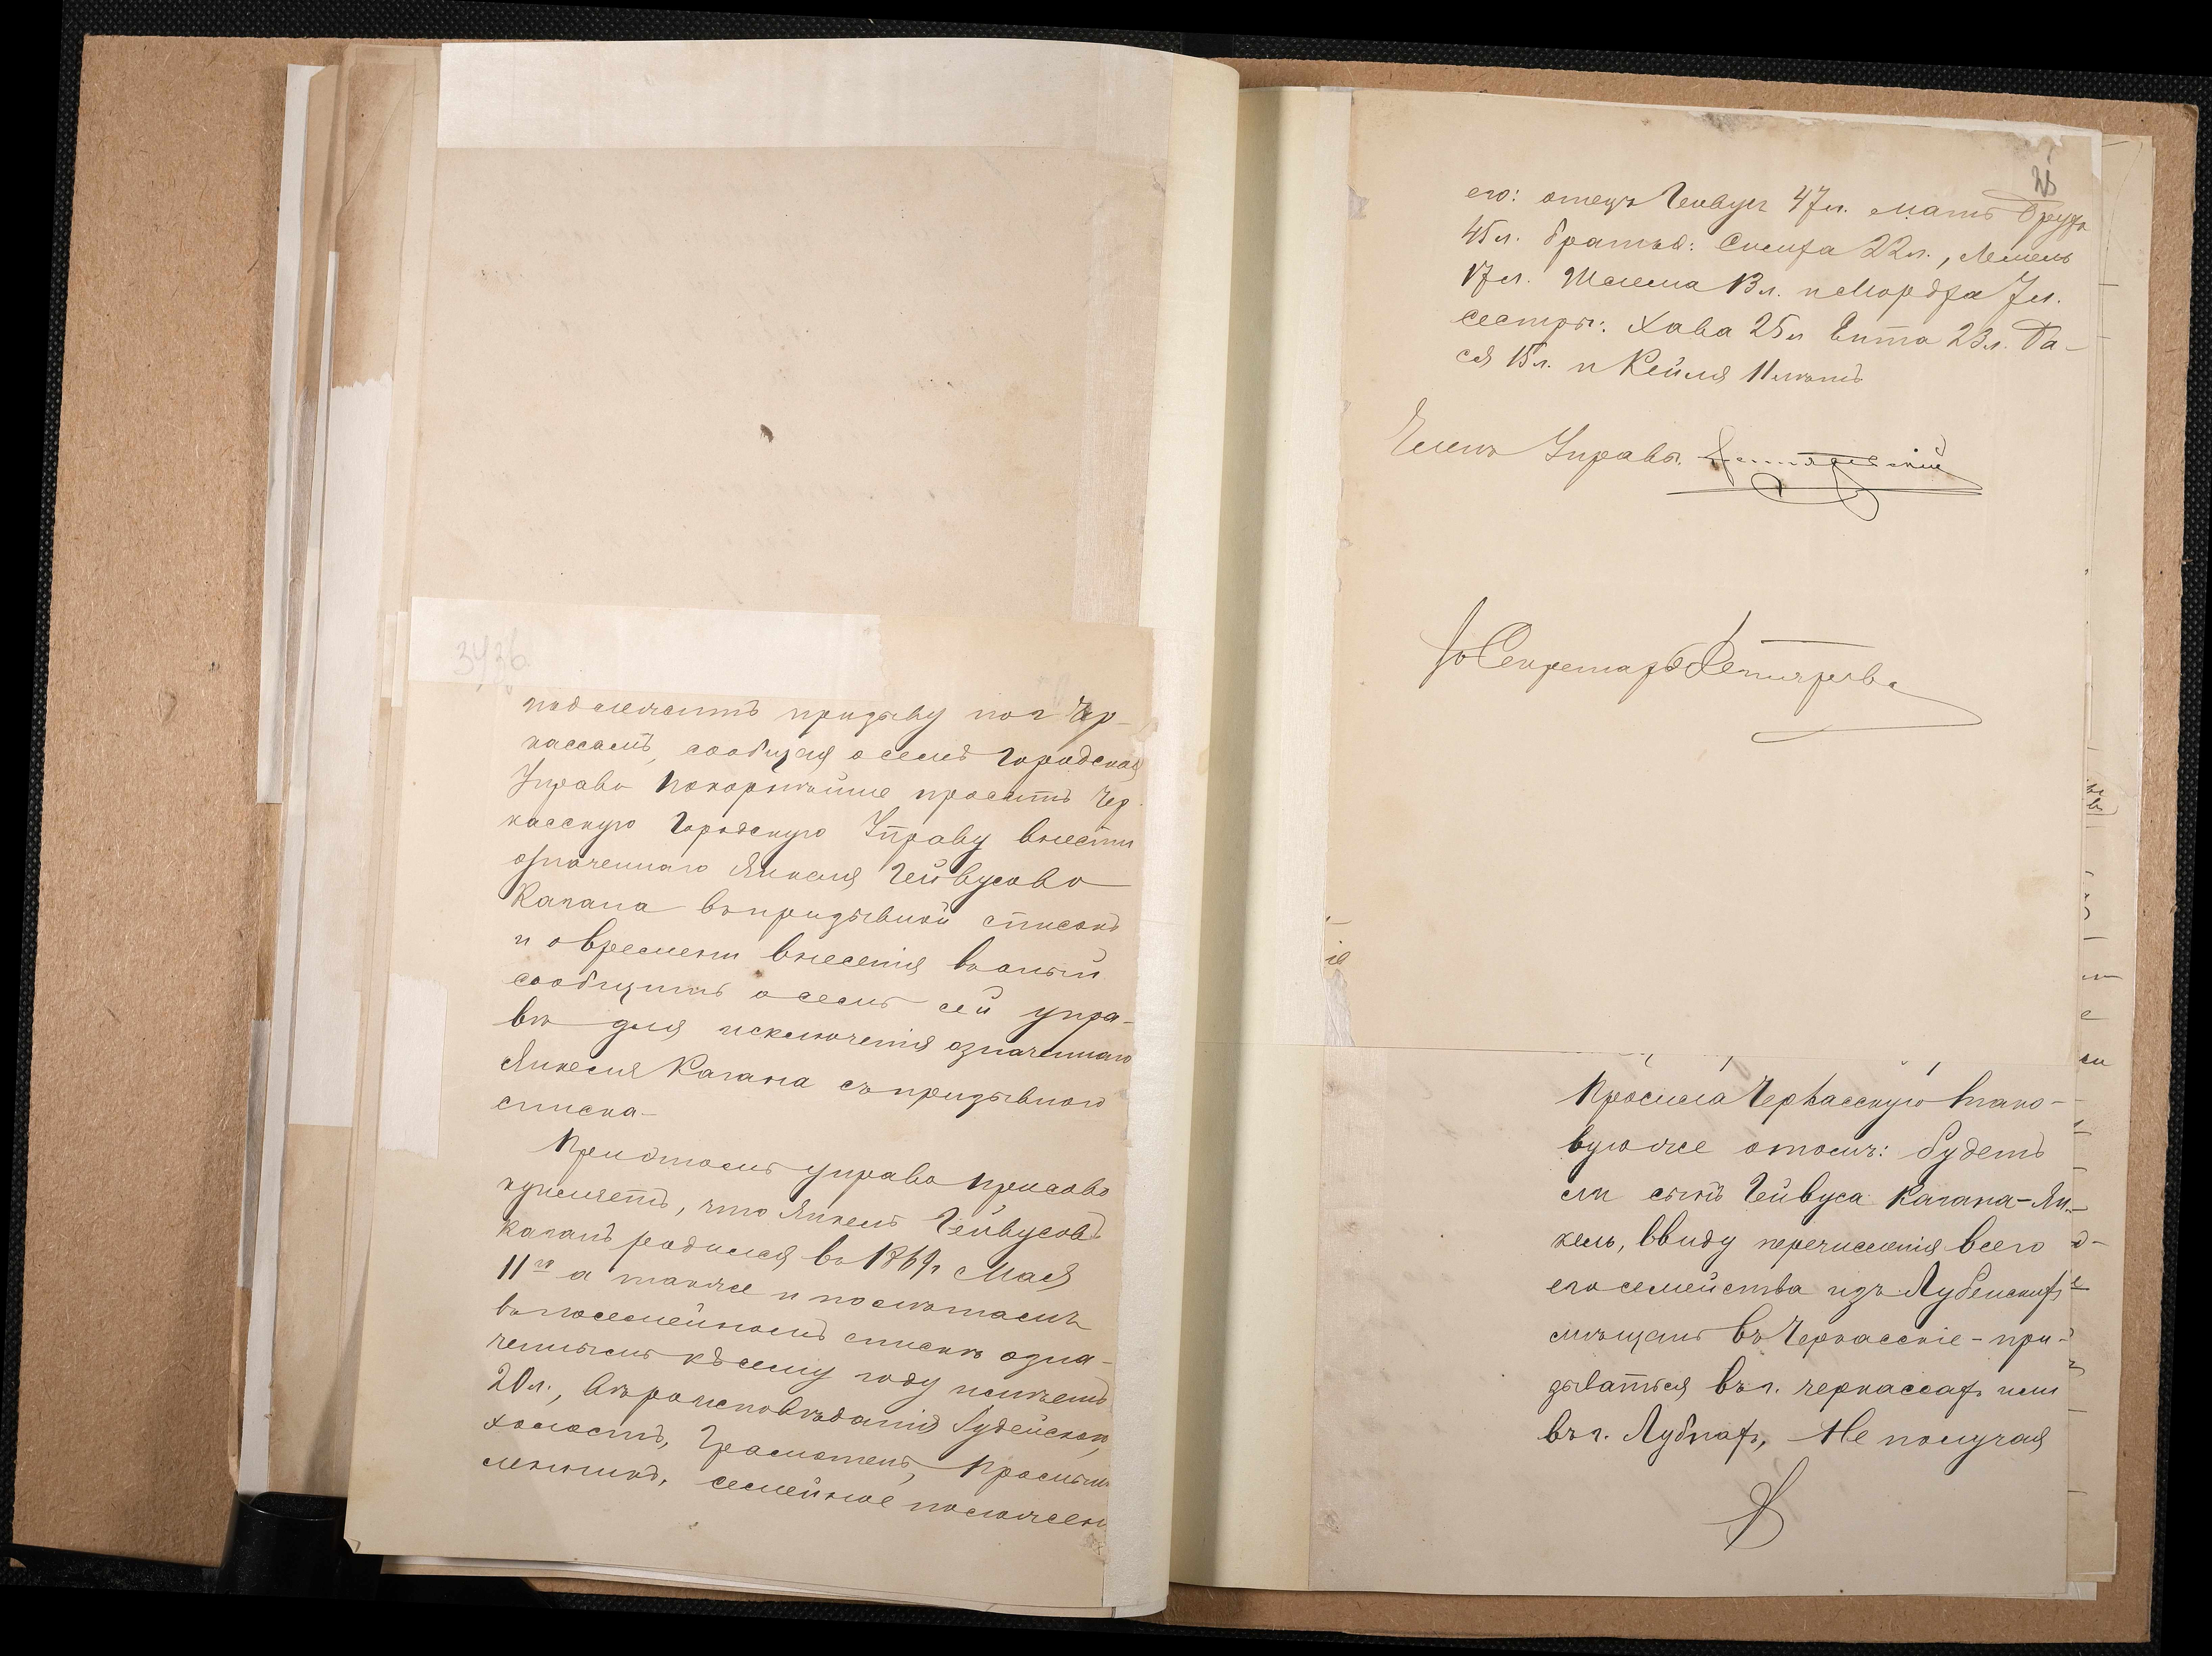 3436
подлежитъ призыву по г Чер-
кассамъ, сообщая о семъ Городская
Управа покорнѣйше проситъ Чер-
касскую Городскую Управу внести
означеннаго Янкеля Гейвусова
Кагана въ призывной списокъ
и о времени внесенія въ оный
сообщить о семъ сей упра-
вѣ для исключенія означеннаго
Янкеля Кагана съ призывного
списка
При этомъ управа присово
купляетъ, что Янкель Гейвусовъ
Каганъ родился въ 1869 г Мая
11го а также и по лѣтамъ
въ посемейномъ спискѣ озна-
ченнымъ къ сему году имѣетъ
20 л., вѣроисповѣданія Іудейскаго,
холостъ, грамотенъ,
семейное положен
его: отецъ Гейвусъ 47 л. мать
45 л. братья: 22 л., Лемель
17 л. Шлема 13 л. и Мордха 7 л.
сестры: Хава 25 л Ента 23 л. Ба-
ся 15 л. и Кейля 11 лѣтъ
Членъ Управы
Секретарь
Просила Черкасскую тако-
вую же о томъ: будетъ
ли сынъ Гейвуса Кагана-Ян-
кель, ввиду перечисленія всего
его семейства изъ Лубенскихъ
мѣщанъ въ Черкасскіе - при-
зыватся въ г. Черкассахъ или
въ г. Лубнахъ, Не получая